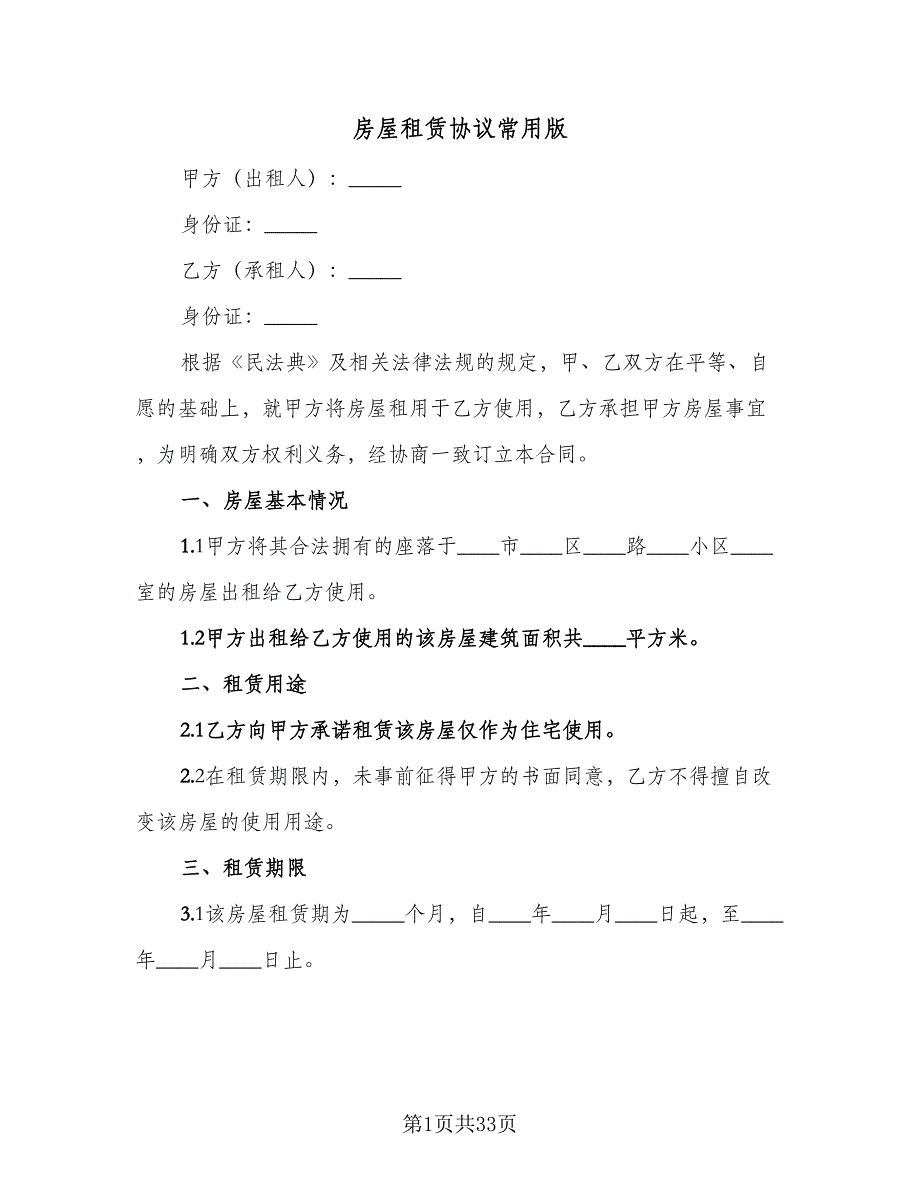 房屋租赁协议常用版
甲方（出租人）：_____
身份证：_____
乙方（承租人）：_____
身份证：_____
根据《民法典》及相关法律法规的规定，甲、乙双方在平等、自
愿的基础上，就甲方将房屋租用于乙方使用，乙方承担甲方房屋事宜
，为明确双方权利义务，经协商一致订立本合同。
一、房屋基本情况
1.1甲方将其合法拥有的座落于____市____区____路____小区____
室的房屋出租给乙方使用。
1.2甲方出租给乙方使用的该房屋建筑面积共____平方米。
二、租赁用途
2.1乙方向甲方承诺租赁该房屋仅作为住宅使用。
2.2在租赁期限内，未事前征得甲方的书面同意，乙方不得擅自改
变该房屋的使用用途。
三、租赁期限
3.1该房屋租赁期为_____个月，自____年____月____日起，至____
年____月____日止。
第1页共33页